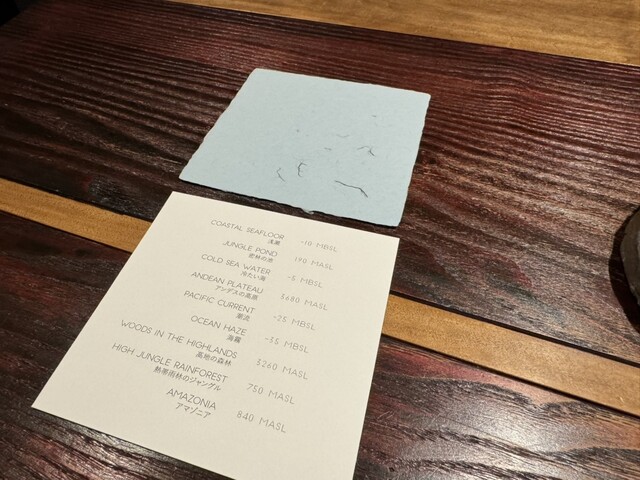 COASTAL SEAFLOOR -10 MBSL
浅瀬
JUNGLE POND 190 MASL
密林の池
COLD SEA WATER -5 MBSL
冷たい海
ANDEAN PLATEAU 3680 MASL
アンデスの高原
PACIFIC CURRENT -25 MBSL
潮流
OCEAN HAZE -35 MBSL
海霧
WOODS IN THE HIGHLANDS 3260 MASL
高地の森林
HIGH JUNGLE RAINFOREST 750 MASL
熱帯雨林のジャングル
AMAZONIA 840 MASL
アマゾニア